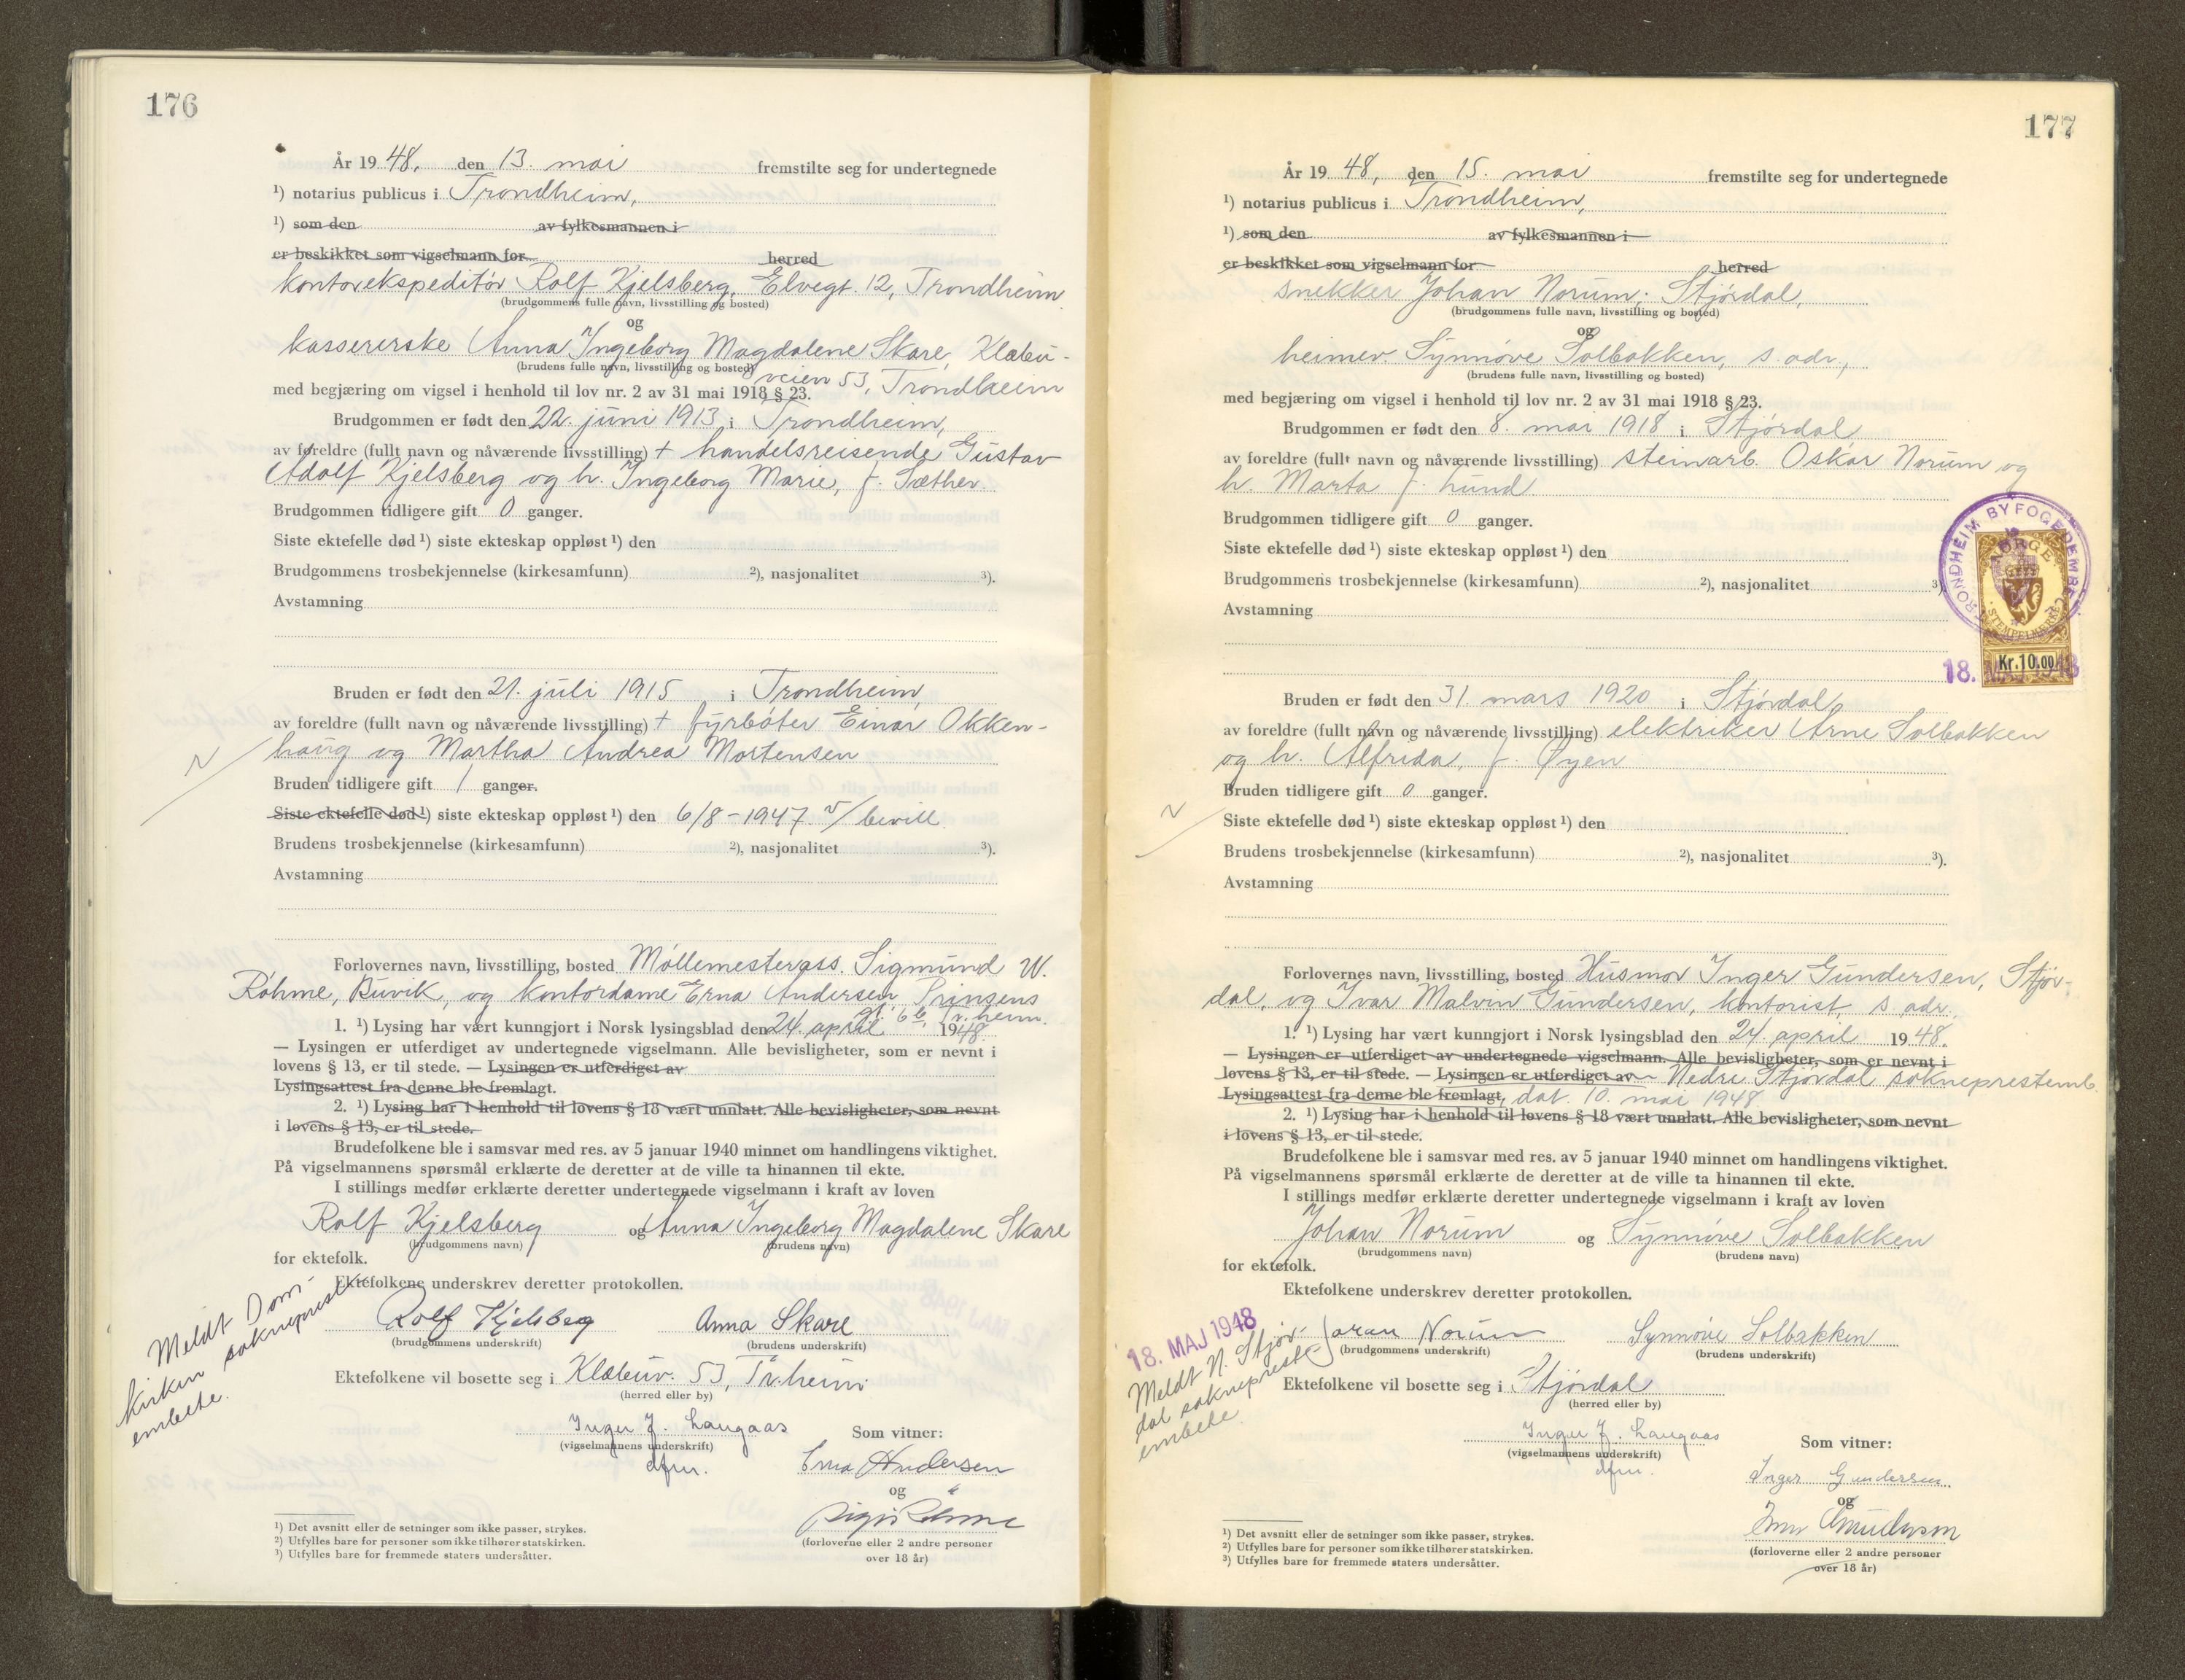 176
År 19 48, den 13. mai fremstilte seg for undertegnede
¹) notarius publicus i Trondheim,
¹) som den av fylkesmannen i
er beskikket som vigselmann for herred
kontorekspeditør Rolf Kjelsberg, Elvegt. 12, Trondheim
(brudgommens fulle navn, livsstilling og bosted)
og
kassererske Anna Ingeborg Magdalene Skare, Klæbu-
(brudens fulle navn, livsstilling og bosted)
veien 53, Trondheim
med begjæring om vigsel i henhold til lov nr. 2 av 31 mai 1918 § 23.
Brudgommen er født den 22. juni 1913 i Trondheim,
av foreldre (fullt navn og nåværende livsstilling) + handelsreisende Gustav
Adolf Kjelsberg og h. Ingeborg Marie, f. Sæther.
Brudgommen tidligere gift 0 ganger.
Siste ektefelle død ¹) siste ekteskap oppløst ¹) den
Brudgommens trosbekjennelse (kirkesamfunn) ²), nasjonalitet ³).
Avstamning
Bruden er født den 21. juli 1915 i Trondheim
av foreldre (fullt navn og nåværende livsstilling) + fyrbøter Einar Okken-
haug og Martha Andrea Mortensen
Bruden tidligere gift 1 ganger.
Siste ektefelle død ¹) siste ekteskap oppløst ¹) den 6/8 - 1947 v/ bevill.
Brudens trosbekjennelse (kirkesamfunn) ²), nasjonalitet ³).
Avstamning
Forlovernes navn, livsstilling, bosted Møllemesterass. Sigmund W.
Röhme, Buvik, og kontordame Erna Andersen Prinsens
gt. 6b, Tr.heim.
1. ¹) Lysing har vært kunngjort i Norsk lysingsblad den 24. april 1948.
— Lysingen er utferdiget av undertegnede vigselmann. Alle bevisligheter, som er nevnt i
lovens § 13, er til stede. — Lysingen er utferdiget av
Lysingsattest fra denne ble fremlagt.
2. ¹) Lysing har i henhold til lovens § 18 vært unnlatt. Alle bevisligheter, som nevnt
i lovens § 13, er til stede.
Brudefolkene ble i samsvar med res. av 5 januar 1940 minnet om handlingens viktighet.
På vigselmannens spørsmål erklærte de deretter at de ville ta hinannen til ekte.
I stillings medfør erklærte deretter undertegnede vigselmann i kraft av loven
Rolf Kjelsberg og Anna Ingeborg Magdalene Skare
(brudgommens navn) (brudens navn)
for ektefolk.
Ektefolkene underskrev deretter protokollen.
Meldt Dom-
kirken sokneprest
embete.
Rolf Kjelsberg Anna Skare
(brudgommens underskrift) (brudens underskrift)
Ektefolkene vil bosette seg i Klæbuv. 53, Tr.heim
(herred eller by)
Inger J. Langaas Som vitner:
(vigselmannens underskrift)
dfm. Erna Andersen
og
(forloverne eller 2 andre personer
over 18 år)
¹) Det avsnitt eller de setninger som ikke passer, strykes.
²) Utfylles bare for personer som ikke tilhører statskirken.
³) Utfylles bare for fremmede staters undersåtter.
177
År 19 48, den 15. mai fremstilte seg for undertegnede
¹) notarius publicus i Trondheim,
¹) som den av fylkesmannen i
er beskikket som vigselmann for herred
snekker Johan Norum, Stjørdal,
(brudgommens fulle navn, livsstilling og bosted)
og
heimev. Synnøve Solbakken, s. adr.,
(brudens fulle navn, livsstilling og bosted)
med begjæring om vigsel i henhold til lov nr. 2 av 31 mai 1918 § 23.
Brudgommen er født den 8. mai 1918 i Stjørdal
av foreldre (fullt navn og nåværende livsstilling) steinarb. Oskar Norum og
h. Marta f. Lund
Brudgommen tidligere gift 0 ganger.
Siste ektefelle død ¹) siste ekteskap oppløst ¹) den
Brudgommens trosbekjennelse (kirkesamfunn) ²), nasjonalitet ³)
Avstamning
TRONDHEIM BYFOGEDEMBEDE
NORGE
STEMPELMERKE
Kr. 10.00
18. MAJ 1948
Bruden er født den 31. mars 1920 i Stjørdal
av foreldre (fullt navn og nåværende livsstilling) elektriker Arne Solbakken
og h. Alfrida, f. Øyen
Bruden tidligere gift 0 ganger.
Siste ektefelle død ¹) siste ekteskap oppløst ¹) den
Brudens trosbekjennelse (kirkesamfunn) ²), nasjonalitet ³).
Avstamning
Forlovernes navn, livsstilling, bosted Husmor Inger Gundersen, Stjør-
dal, og Ivar Malvin Gundersen, kontorist, s. adr.
1. ¹) Lysing har vært kunngjort i Norsk lysingsblad den 24. april 1948.
— Lysingen er utferdiget av undertegnede vigselmann. Alle bevisligheter, som er nevnt i
lovens § 13, er til stede. — Lysingen er utferdiget av Nedre Stjørdal sokneprestemb.
Lysingsattest fra denne ble fremlagt, dat. 10. mai 1948
2. ¹) Lysing har i henhold til lovens § 18 vært unnlatt. Alle bevisligheter, som nevnt
i lovens § 13, er til stede.
Brudefolkene ble i samsvar med res. av 5 januar 1940 minnet om handlingens viktighet.
På vigselmannens spørsmål erklærte de deretter at de ville ta hinannen til ekte.
I stillings medfør erklærte deretter undertegnede vigselmann i kraft av loven
Johan Norum og Synnøve Solbakken
(brudgommens navn) (brudens navn)
for ektefolk.
Ektefolkene underskrev deretter protokollen.
18. MAJ 1948
Meldt N. Stjør-
dal sokneprest-
embete.
Johan Norum Synnøve Solbakken
(brudgommens underskrift) (brudens underskrift)
Ektefolkene vil bosette seg i Stjørdal
(herred eller by)
Inger J. Langaas Som vitner:
(vigselmannens underskrift)
dfm. Inger Gundersen
og
Gundersen
(forloverne eller 2 andre personer
over 18 år)
¹) Det avsnitt eller de setninger som ikke passer, strykes.
²) Utfylles bare for personer som ikke tilhører statskirken.
³) Utfylles bare for fremmede staters undersåtter.